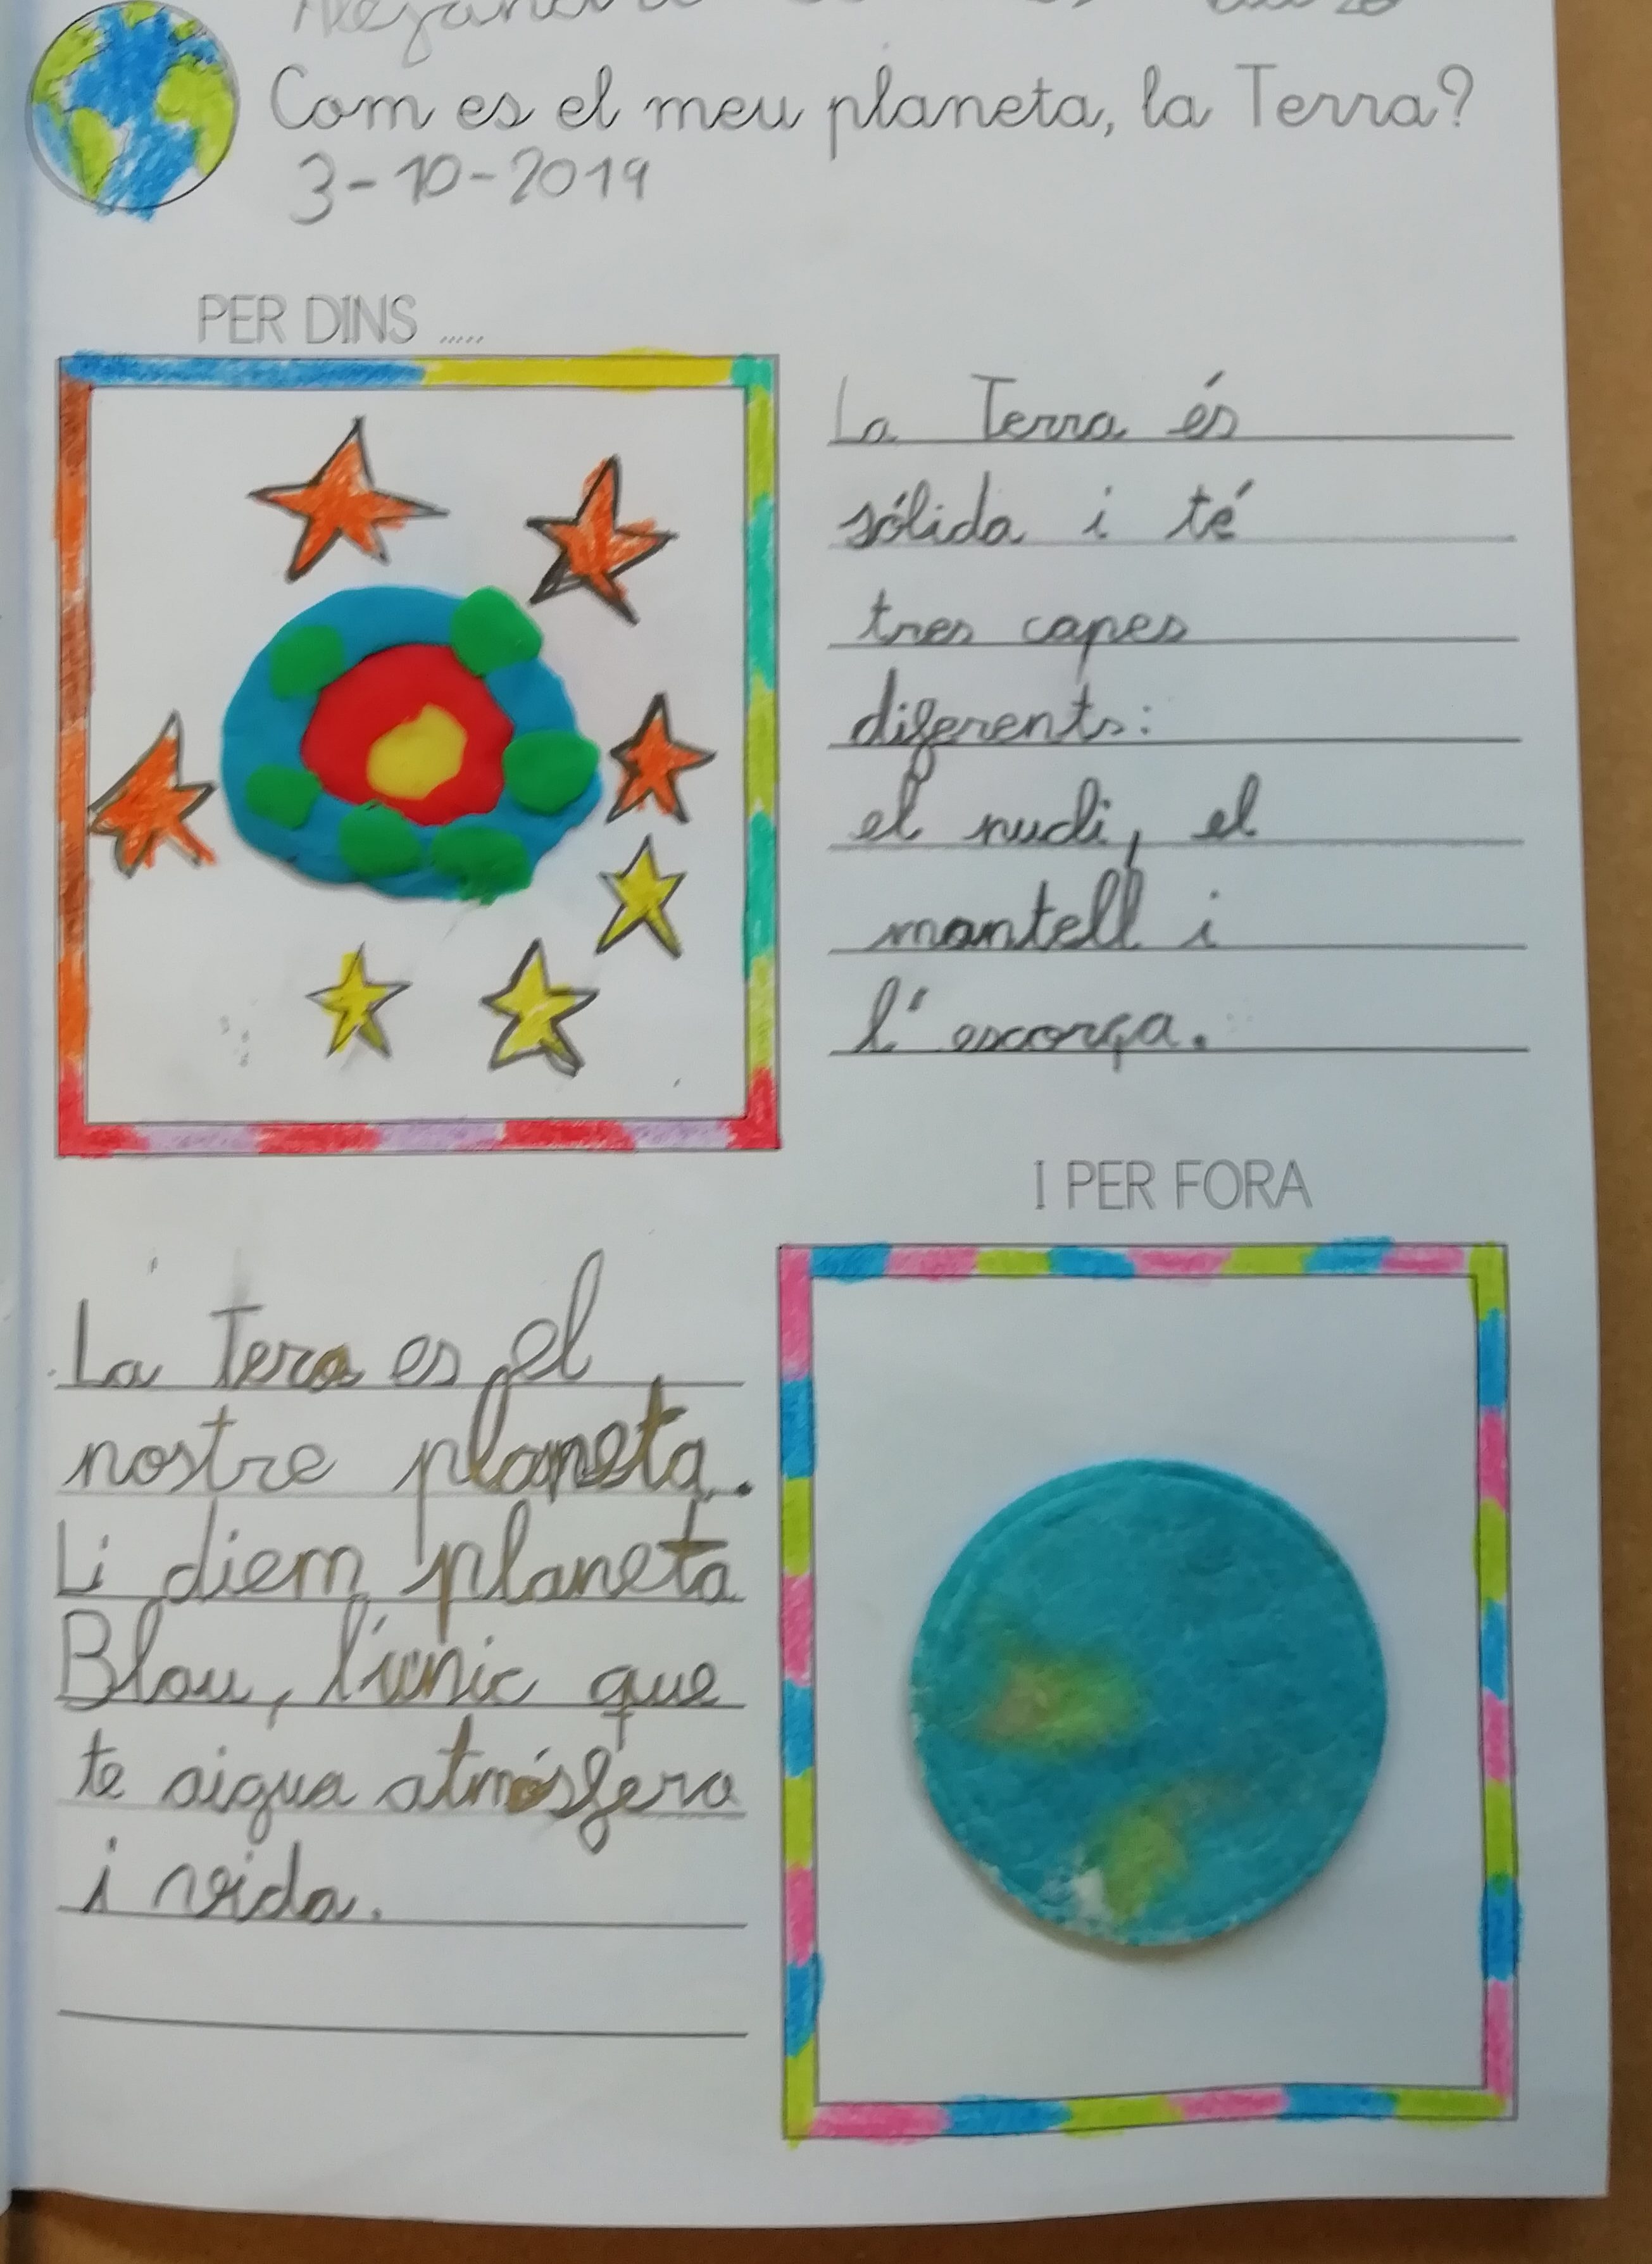 Com es el meu planeta, la Terra?
3-10-2019
PER DINS .....
La Terra és
sólida i té
tres capes
diferents:
el nucli, el
mantell i
l'escorça.
I PER FORA
La Tera es el
nostre planeta.
Li diem planeta
Blau, l'únic que
te aigua atmósfera
i vida.